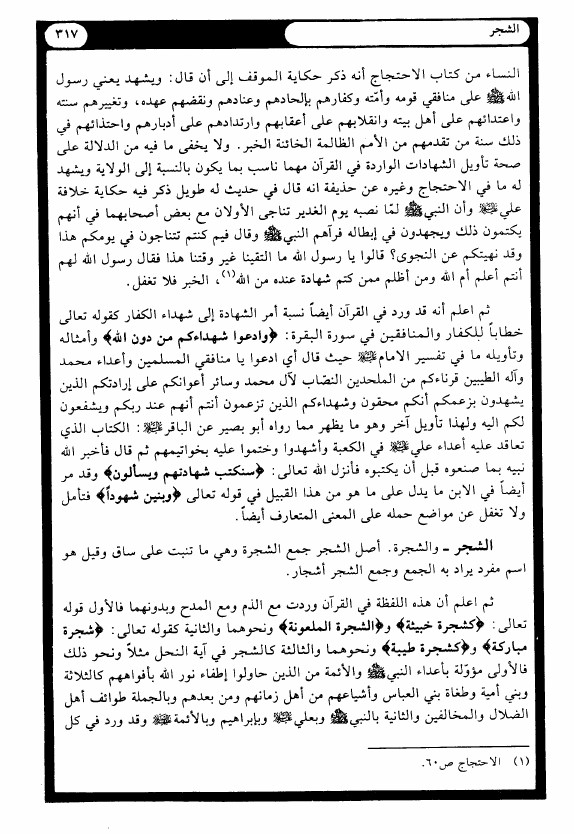 الشجر
٣١٧
النساء من كتاب الاحتجاج أنه ذكر حكاية الموقف إلى أن قال: ويشهد يعني رسول
الله ﷺ على منافقي قومه وأمّته وكفارهم بإلحادهم وعنادهم ونقضهم عهده، وتغييرهم سنته
واعتدائهم على أهل بيته وانقلابهم على أعقابهم وارتدادهم على أدبارهم واحتذائهم في
ذلك سنة من تقدمهم من الأمم الظالمة الخائنة الخبر. ولا يخفى ما فيه من الدلالة على
صحة تأويل الشهادات الواردة في القرآن مهما ناسب بما يكون بالنسبة إلى الولاية ويشهد
له ما في الاحتجاج وغيره عن حذيفة انه قال في حديث له طويل ذكر فيه حكاية خلافة
علي عليه السلام وأن النبي ﷺ لمّا نصبه يوم الغدير تناجى الأولان مع بعض أصحابهما في أنهم
يكتمون ذلك ويجهدون في إبطاله فرآهم النبي ﷺ وقال فيم كنتم تتناجون في يومكم هذا
وقد نهيتكم عن النجوى؟ قالوا يا رسول الله ما التقينا غير وقتنا هذا فقال رسول الله لهم
أنتم أعلم أم الله ومن أظلم ممن كتم شهادة عنده من الله(١)، الخبر فلا تغفل.
ثم اعلم أنه قد ورد في القرآن أيضاً نسبة أمر الشهادة إلى شهداء الكفار كقوله تعالى
خطاباً للكفار والمنافقين في سورة البقرة: ﴿وادعوا شهداءكم من دون الله﴾ وأمثاله
وتأويله ما في تفسير الامام عليه السلام حيث قال أي ادعوا يا منافقي المسلمين وأعداء محمد
وآله الطيبين قرناءكم من الملحدين النصّاب لآل محمد وسائر أعوانكم على إرادتكم الذين
يشهدون بزعمكم أنكم محقون وشهداءكم الذين تزعمون أنتم أنهم عند ربكم ويشفعون
لكم اليه ولهذا تأويل آخر وهو ما يظهر مما رواه أبو بصير عن الباقر عليه السلام: الكتاب الذي
تعاقد عليه أعداء علي عليه السلام في الكعبة وأشهدوا وختموا عليه بخواتيمهم ثم قال فأخبر الله
نبيه بما صنعوه قبل أن يكتبوه فأنزل الله تعالى: ﴿سنكتب شهادتهم ويسألون﴾ وقد مر
أيضاً في الابن ما يدل على ما هو من هذا القبيل في قوله تعالى ﴿وبنين شهوداً﴾ فتأمل
ولا تغفل عن مواضع حمله على المعنى المتعارف أيضاً.
الشجر ــ والشجرة. أصل الشجر جمع الشجرة وهي ما تنبت على ساق وقيل هو
اسم مفرد يراد به الجمع وجمع الشجر أشجار.
ثم اعلم أن هذه اللفظة في القرآن وردت مع الذم ومع المدح وبدونهما فالأول قوله
تعالى: ﴿كشجرة خبيثة﴾ و﴿الشجرة الملعونة﴾ ونحوهما والثانية كقوله تعالى: ﴿شجرة
مباركة﴾ و﴿كشجرة طيبة﴾ ونحوهما والثالثة كالشجر في آية النحل مثلاً ونحو ذلك
فالأولى مؤوّلة بأعداء النبي ﷺ والأئمة من الذين حاولوا إطفاء نور الله بأفواههم كالثلاثة
وبني أمية وطغاة بني العباس وأشياعهم من أهل زمانهم ومن بعدهم وبالجملة طوائف أهل
الضلال والمخالفين والثانية بالنبي ﷺ وبعلي عليه السلام وبإبراهيم وبالأئمة عليهم السلام وقد ورد في كل
(١) الاحتجاج ص٦٠.